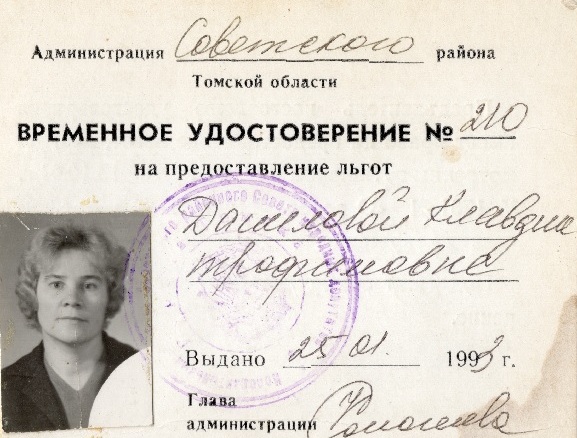 Администрация Советского района
Томской области
ВРЕМЕННОЕ УДОСТОВЕРЕНИЕ № 210
на предоставление льгот
Даниловой Клавдии
Трофимовне
Выдано 25 01. 1993 г.
Глава
администрации